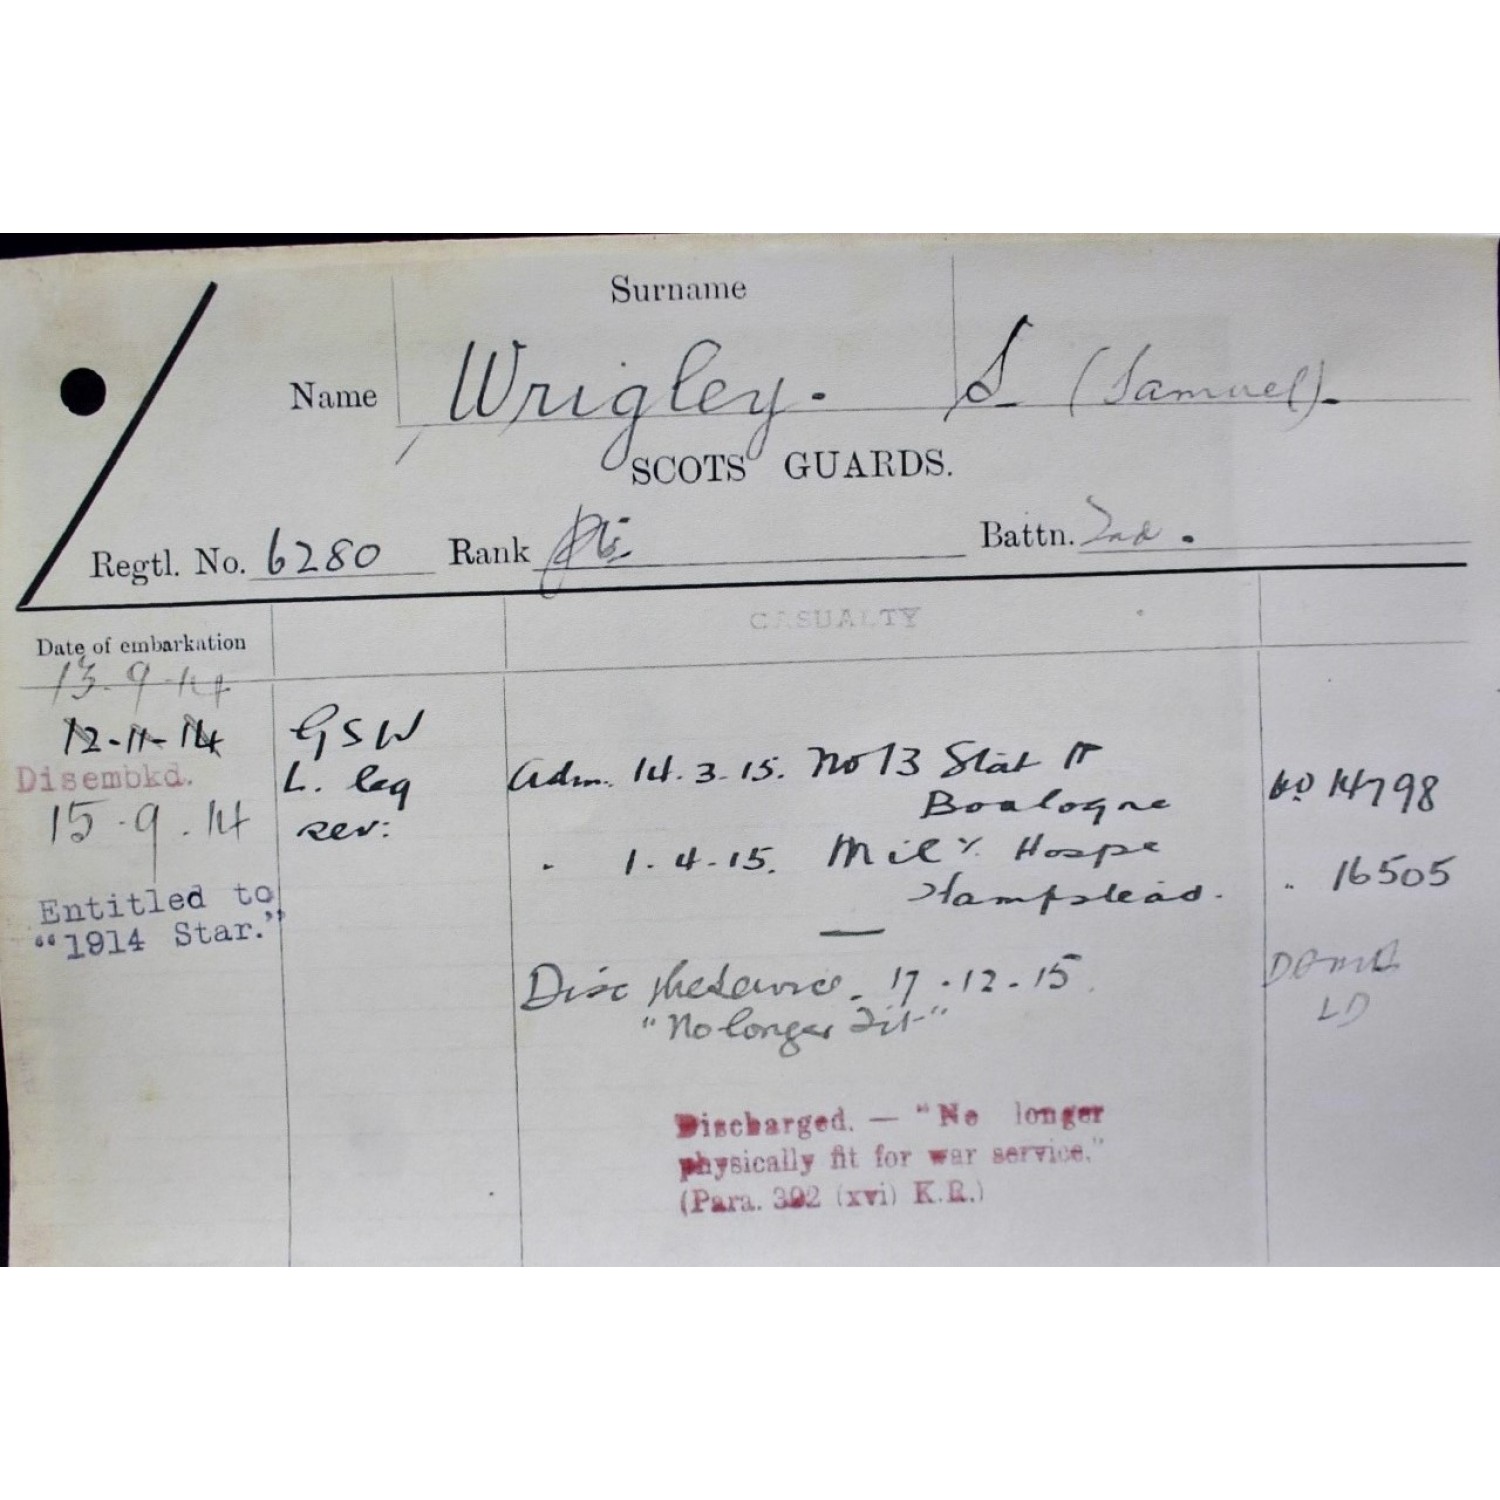 Surname
Name Wrigley. S (Samuel).
SCOTS GUARDS.
Regtl. No. 6280 Rank Pte. Battn. 2nd.
CASUALTY
Date of embarkation
13.9.14
12-11-14 GSW
Disembkd. L. leg Adm. 14.3.15. No 13 Stat H 14798
15.9.14 sev: Boulogne
" 1.4.15. Mily. Hosp
Hampstead. " 16505
Entitled to
"1914 Star."
Disc the Service. 17.12.15.
"No longer fit"
LD
Discharged. — "No longer
physically fit for war service."
(Para. 392 (xvi) K.R.)